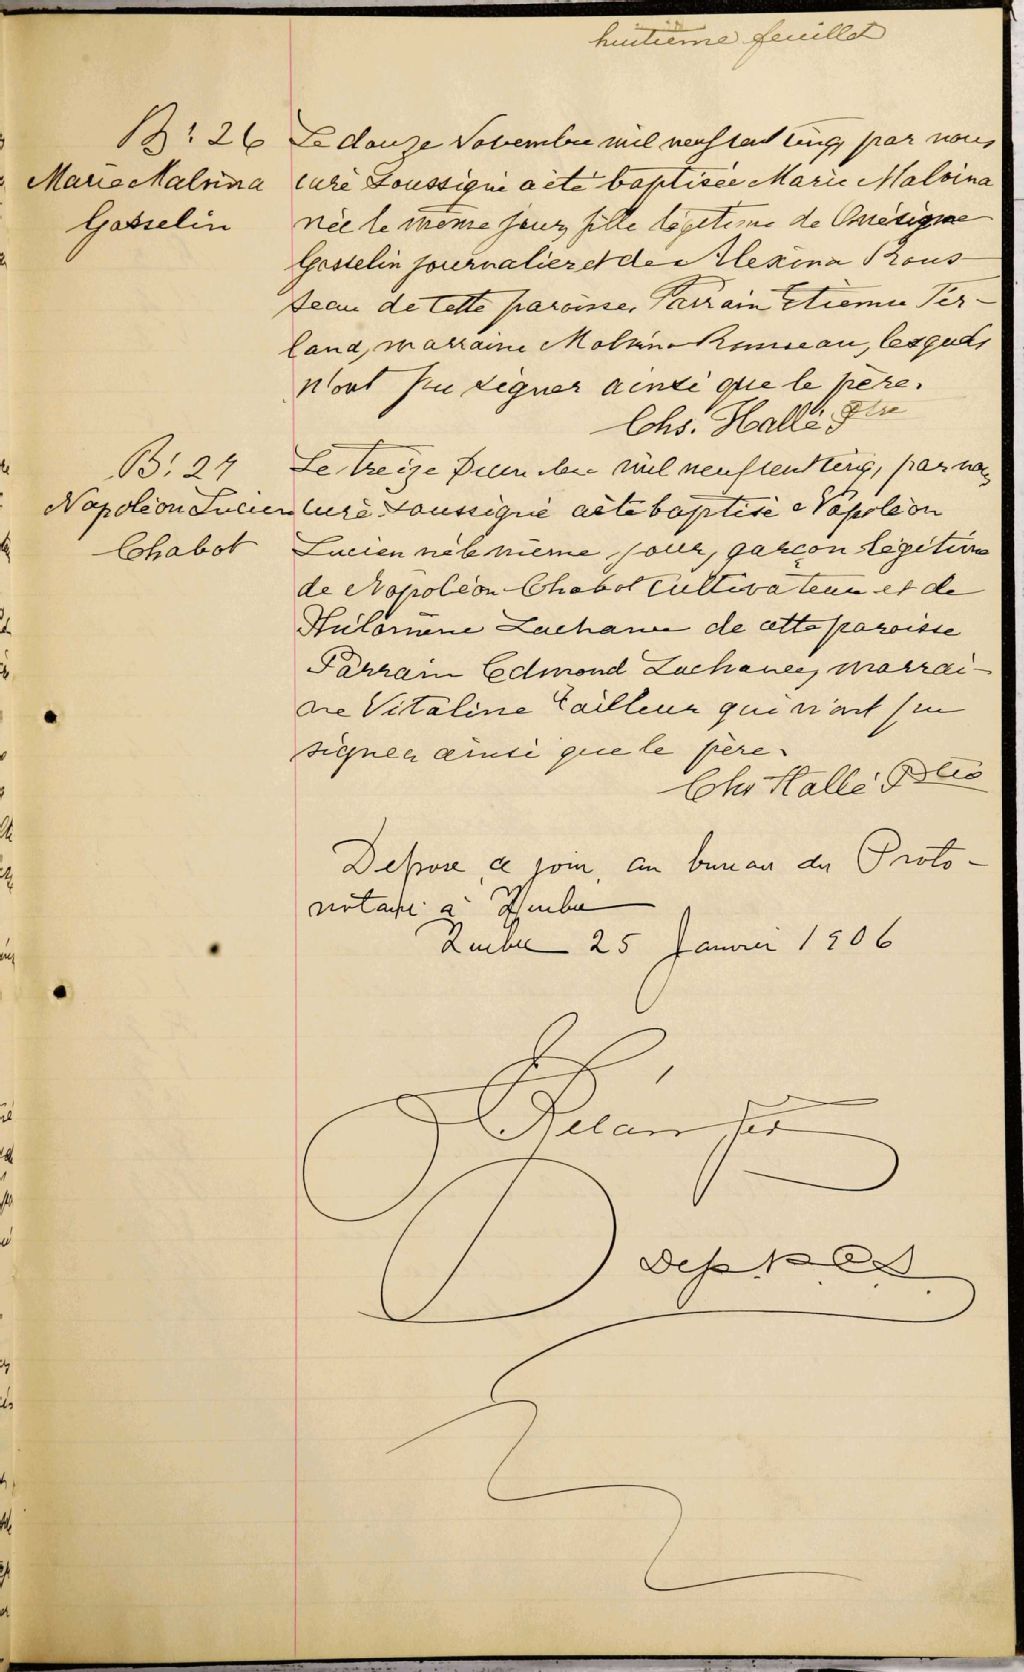 huitième feuillet
B: 26
Marie Malvina
Gosselin
Le douze Novembre mil neuf cent cinq, par nous
curé soussigné a été baptisée Marie Malvina
née le même jour, fille légitime de Onésime
Gosselin journalier et de Alexina Rous
seau de cette paroisse, Parrain Etienne Fer-
land, marraine Malvina Rousseau, lesquels
n'ont pu signer ainsi que le père.
Chs. Hallé Ptre
B: 27
Napoléon Lucien
Chabot
Le treize Décembre mil neuf cent cinq, par nous
curé soussigné a été baptisé Napoléon
Lucien né le même jour, garçon légitime
de Napoléon Chabot cultivateur et de
Philomène Lachance de cette paroisse
Parrain Edmond Lachance, marrai-
ne Vitaline Tailleur qui n'ont pu
signer ainsi que le père.
Chs Hallé Ptre
Déposé ce jour, au bureau du Proto-
notaire à Québec
Québec 25 Janvier 1906
Bélanger
Dep. P. C. S.